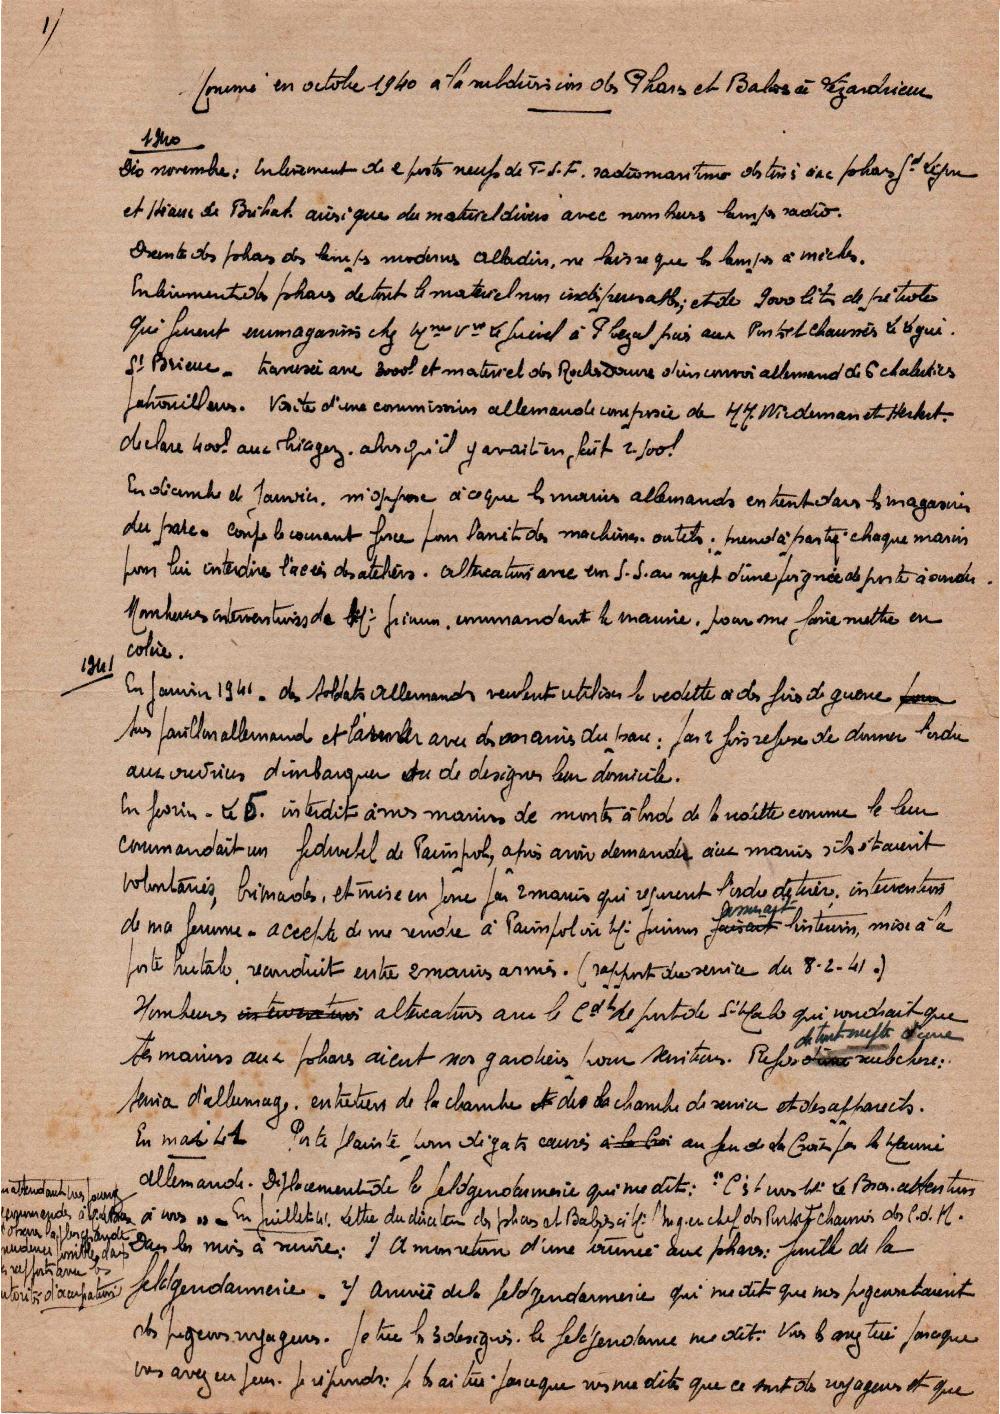 1/
Nommé en octobre 1940 à la subdivision des Phares et Balises à Lézardrieux
1940
Dès novembre : Enlèvement de 2 postes neufs de T.S.F. radiomaritime destinés aux phares
et Héaux de Bréhat. ainsi que du matériel divers avec nombreuses lampes radio.
Descente des phares des lampes modernes Alladin, ne laisse que les lampes à mèches.
Enlèvement des phares de tout le matériel non indispensable, et de 9000 litres de pétrole
qui furent emmagasinés chez Mme Vve à puis aux Ponts et Chaussées
St Brieuc. traversée avec 3000l et matériel des Roches Douvres d'un convoi allemand de 6 chalutiers
patrouilleurs. Visite d'une commission allemande composée de MM. Wiedeman et Herbert.
déclare 400l aux alors qu'il y avait en fût 2400l
En décembre et Janvier. m'oppose à ce que les marins allemands entrent dans les magasins
du parc. coupe le courant force pour l'arrêt des machines-outils ; prend à partie chaque marin
pour lui interdire l'accès des ateliers. altercation avec un S.S. au sujet d'une poignée de porte à souder.
Nombreuses interventions de Mr commandant la marine, pour me faire mettre en
colère.
1941
En Janvier 1941. des soldats allemands veulent utiliser la vedette à des fins de guerre pour
sous pavillon allemand et l'armer avec des marins du parc : par 2 fois refuse de donner l'ordre
aux ouvriers d'embarquer ou de désigner leur domicile.
En février. Le 5. interdit à nos marins de monter à bord de la vedette comme le leur
commandait un feldwebel de Paimpol, après avoir demandé aux marins s'ils étaient
volontaires, brimades, et mise en joue par 2 marins qui reçurent l'ordre de tirer. intervention
de ma femme. accepte de me rendre à Paimpol où Mr faisait l'intérim, mise à la
porte brutale, reconduit entre 2 marins armés. (rapport de service du 8-2-41.)
Nombreuses interventions altercations avec le Cdt de port de St Malo qui voudrait que
les marins aux phares aient nos gardiens pour serviteurs. Refus de tout autre
service d'allumage. entretien de la chambre et de la chambre de service et des appareils.
En mai 41 Porte plainte pour dégâts causés à la Croix au feu de la Croix par la Marine
allemande. Déplacement de la feldgendarmerie qui me dit : "C'est vous Mr Le Bras. attention
à vous". En Juillet 41. Lettre du directeur des phares et Balises à Mr l'Ingr en chef des Ponts et Chaussées des C.d.N.
d'occupation
Dans les mois à suivre : 1/ A mon retour d'une tournée aux phares : fouille de la
feldgendarmerie. 2/ Arrivée de la feldgendarmerie qui me dit que nos pigeons étaient
des pigeons voyageurs. Je tue les 3 désignés. le feldgendarme me dit : Vous les avez tués parceque
vous avez eu peur. Je réponds : je les ai tués parceque vous me dites que ce sont des voyageurs et que